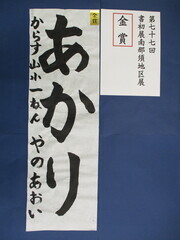 第七十七回
書初展南那須地区展
金賞
金賞
あかり
からす山小一ねん やの あおい